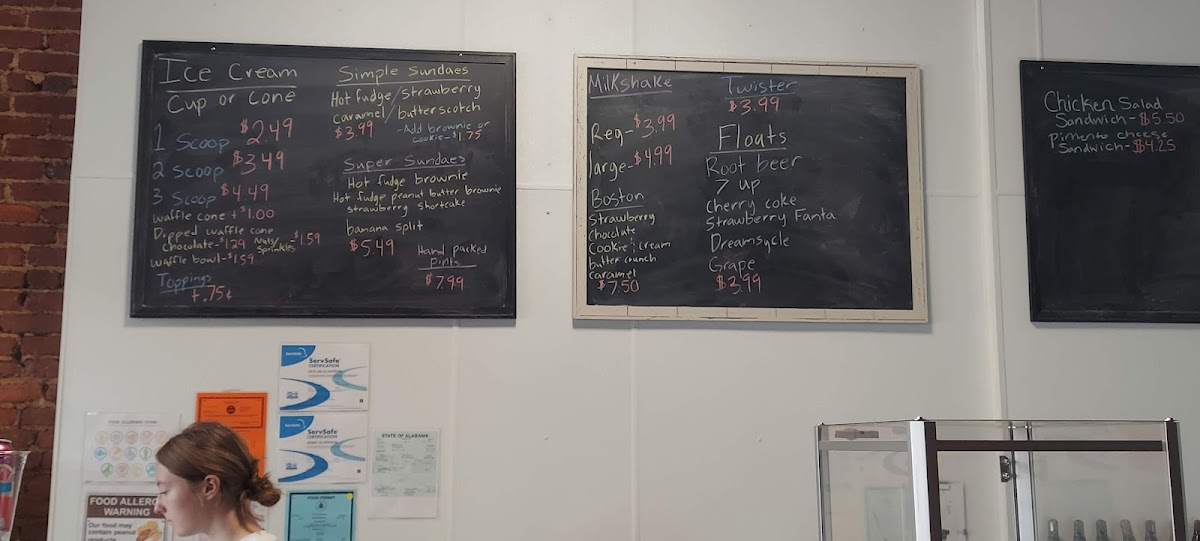 Ice Cream
Cup or Cone
1 Scoop $2.49
2 Scoop $3.49
3 Scoop $4.49
waffle cone + $1.00
Dipped waffle cone
chocolate-$1.29 Nuts/Sprinkles $1.59
waffle bowl-$1.59
Toppings
+.75¢
Simple Sundaes
Hot fudge/strawberry
caramel/butterscotch
$3.99 -Add brownie or
cookie-$1.75
Super Sundaes
Hot fudge brownie
Hot fudge peanut butter brownie
strawberry shortcake
banana split
$5.49
Hand packed
pints
$7.99
Milkshake
Reg-$3.99
large-$4.99
Boston
Strawberry
chocolate
Cookie i cream
butter crunch
caramel
$7.50
Twister
$3.99
Floats
Root beer
7 up
cherry coke
Strawberry Fanta
Dreamsycle
Grape
$3.99
Chicken Salad
Sandwich-$5.50
pimento cheese
Sandwich-$4.25
ServSafe
CERTIFICATION
ServSafe
CERTIFICATION
STATE OF ALABAMA
FOOD PERMIT
FOOD ALLERGY
WARNING
Our food may
contain peanut
products